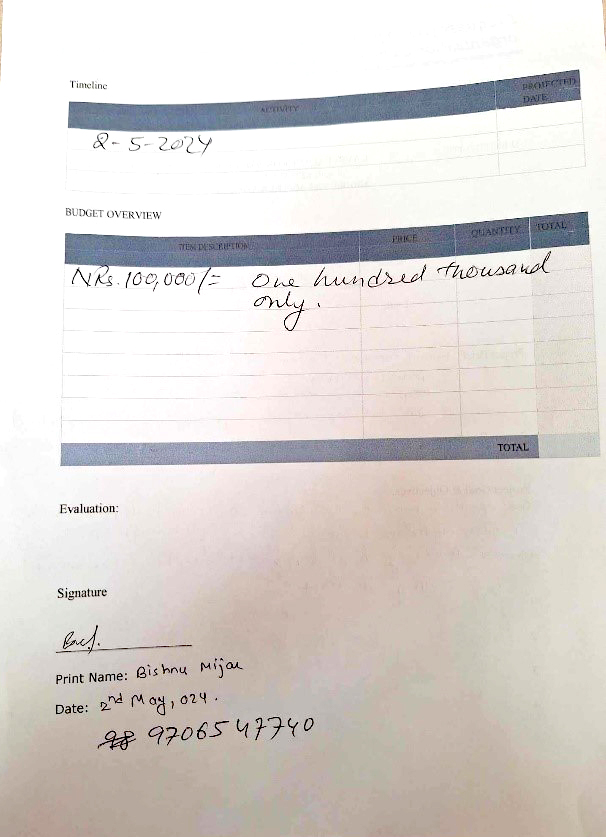 Timeline
ACTIVITY PROJECTED DATE
2-5-2024
BUDGET OVERVIEW
ITEM DESCRIPTION PRICE QUANTITY TOTAL
NRs. 100,000/= One hundred thousand
only.
TOTAL
Evaluation:
Signature
Print Name: Bishnu Mijar
Date: 2nd May, 024.
98 9706547740